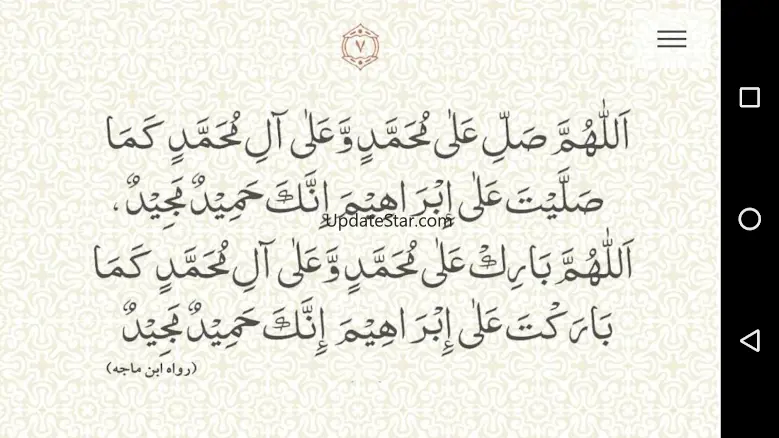 ٧
اَللّٰهُمَّ صَلِّ عَلٰى مُحَمَّدٍ وَّعَلٰى آلِ مُحَمَّدٍ كَمَا
صَلَّيْتَ عَلٰى اِبْرَاهِيْمَ اِنَّكَ حَمِيْدٌ مَّجِيْدٌ،
UpdateStar.com
اَللّٰهُمَّ بَارِكْ عَلٰى مُحَمَّدٍ وَّعَلٰى آلِ مُحَمَّدٍ كَمَا
بَارَكْتَ عَلٰى إِبْرَاهِيْمَ إِنَّكَ حَمِيْدٌ مَّجِيْدٌ
(رواه ابن ماجه)